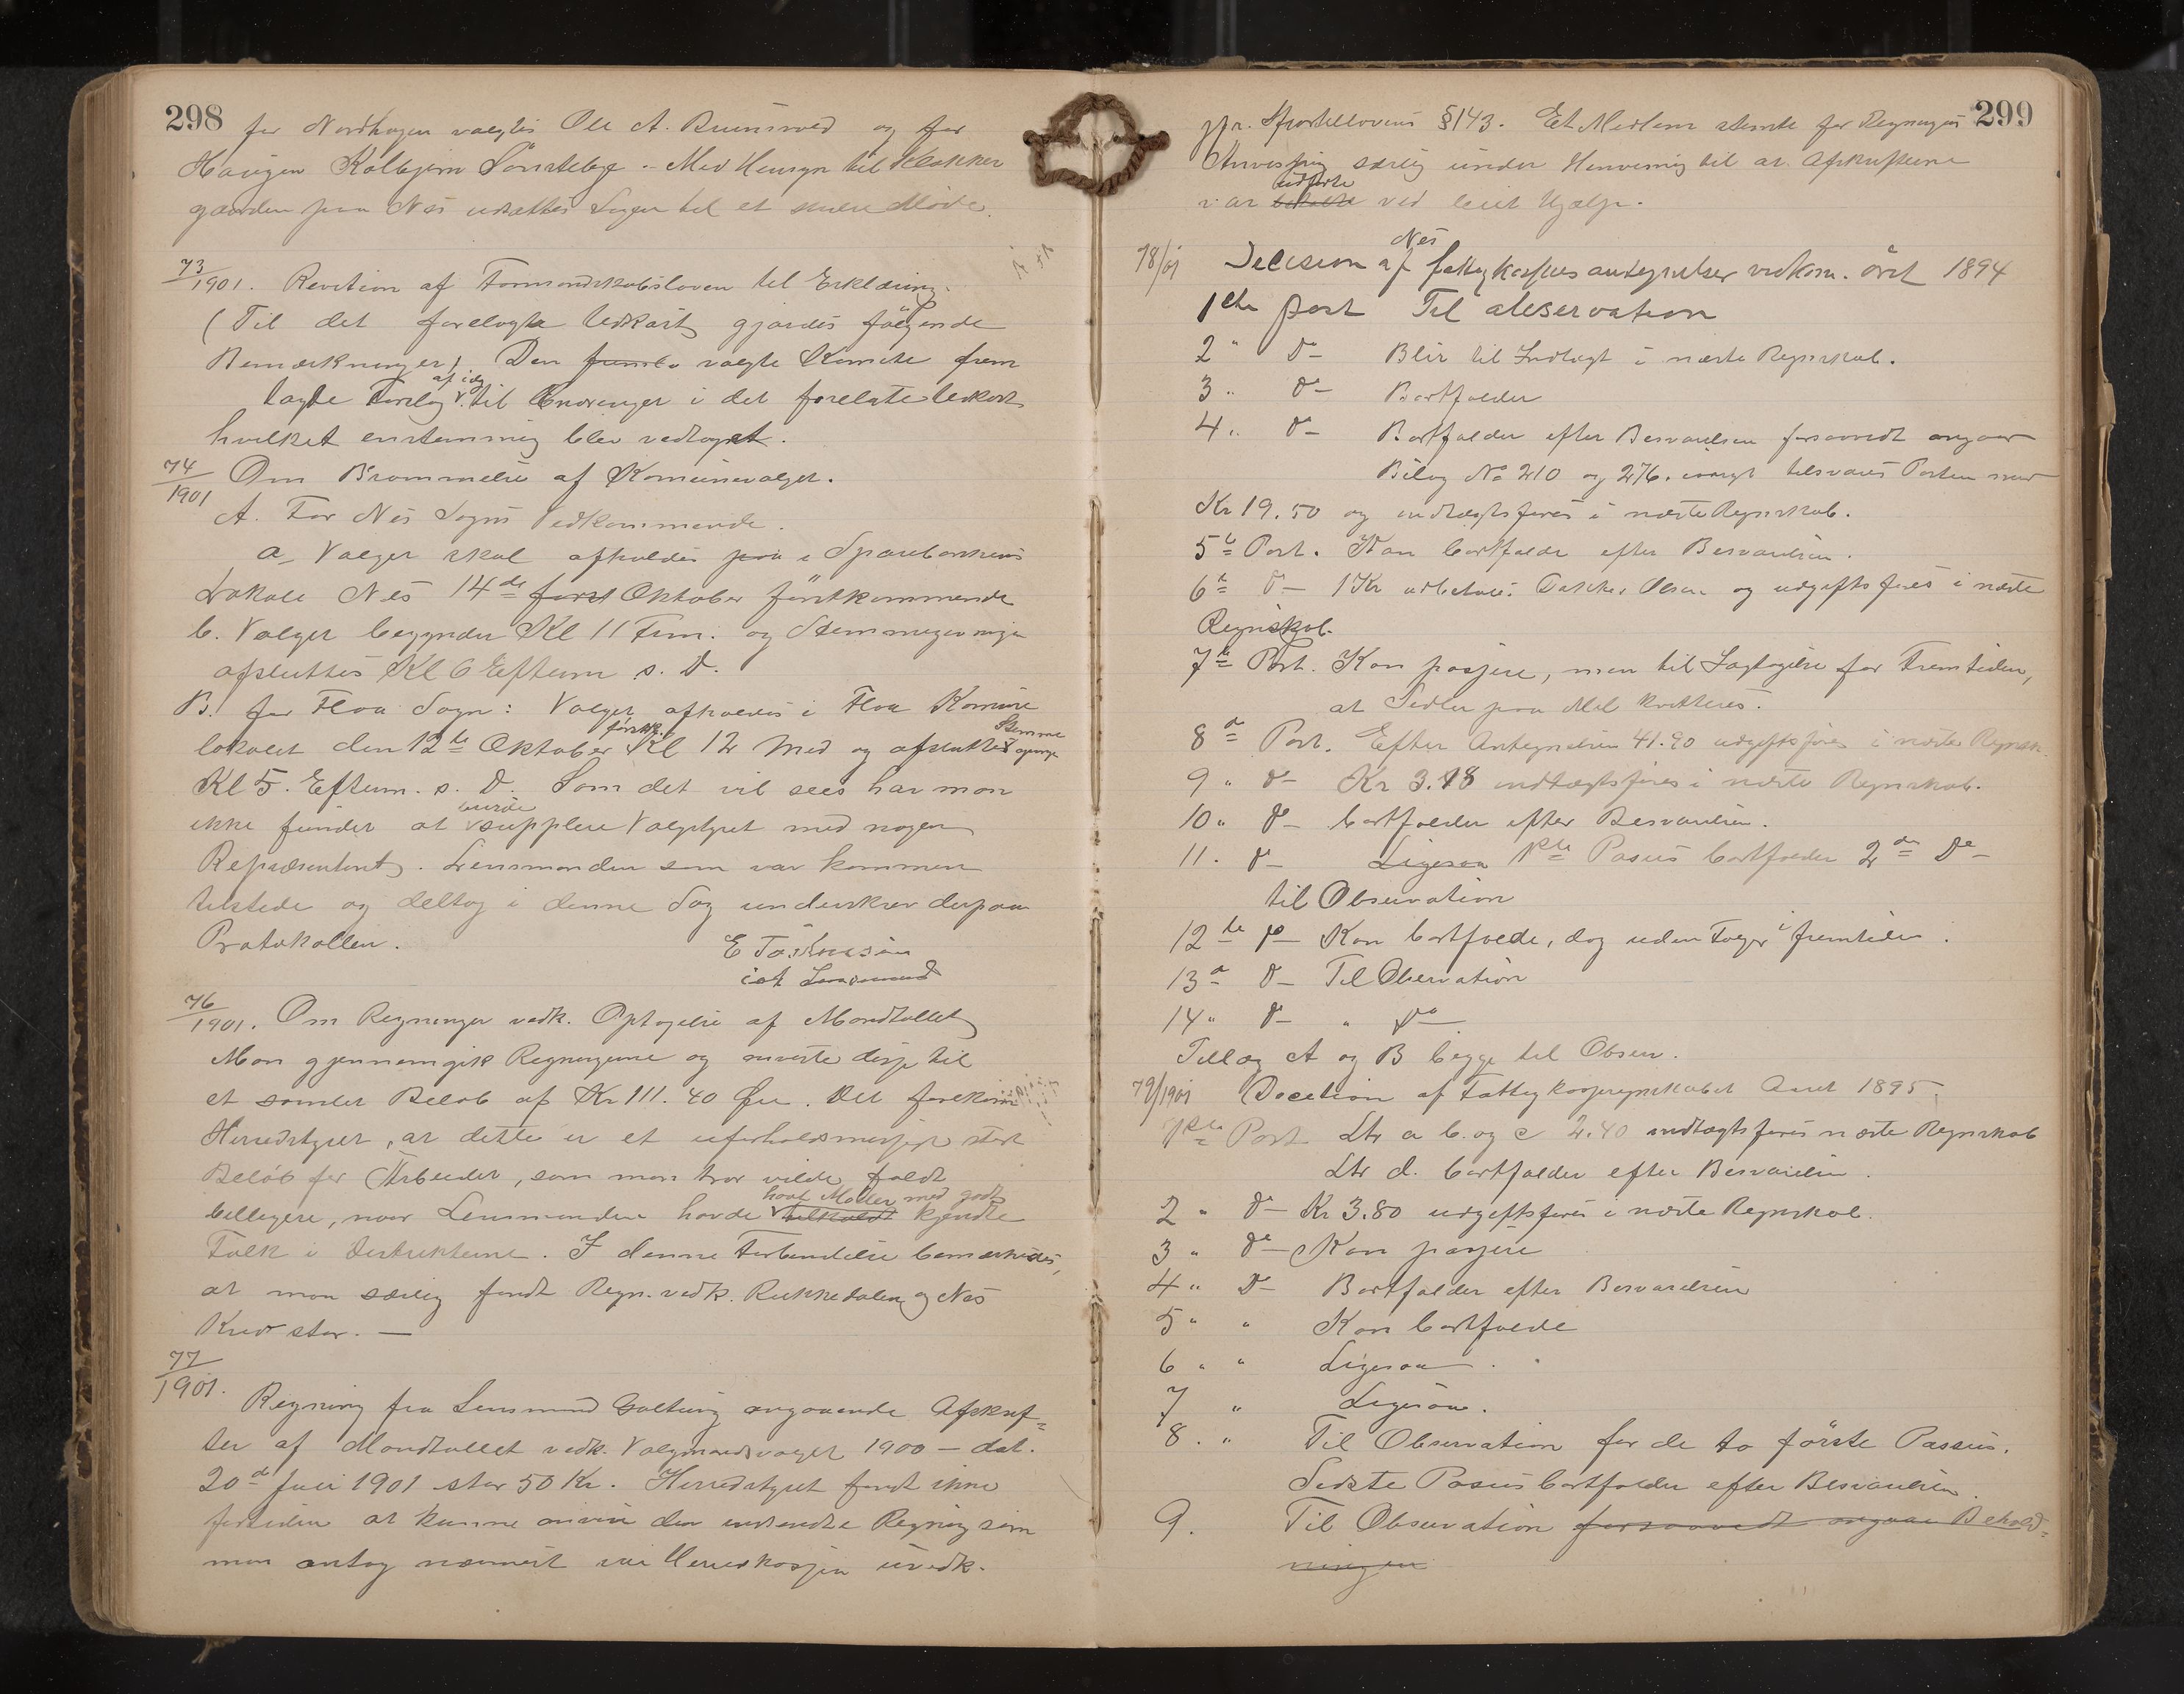 298
for Nordhagen valgtes Ole A. Brunsvold og for
Haugen Kolbjørn Sønsteby. Med Hensyn til Klokker
gaarden paa Nes udsættes Sagen til et senere Møde.
73/1901. Revition af Formandskabsloven til Erklæring.
(Til det forelagte Udkast gjordes følgende
Bemærkninger) Den valgte Komite frem
lagde Forslag til Endringer i det forelagte Udkast
hvilket enstemmig blev vedtaget.
74/1901 Om Berammelse af Komunevalget.
A. For Nes Sogns Vedkommende.
a. Valget skal afholdes paa i Sparebankens
Lokale Nes 14de først Oktober førstkommende
b. Valget begynder Kl 11 Fm. og Stemmegivningen
afsluttes Kl 6 Efterm s. D.
B. for Flaa Sogn: Valget afholdes i Flaa Komune
lokalet den 12te Oktober førstk. Kl 12 Mid og afsluttes Stemmegivningen
Kl 5. Efterm. s. D. Som det vil sees har man
ikke fundet at burde supplere Valgstyret med nogen
Repræsentant. Lensmanden som var kommen
tilstede og deltog i denne Sag underskrev derpaa
Protokollen.
E
cst Lensmand
76/1901. Om Regninger vedk. Optagelse af Mandtallet
Man gjennemgik Regningerne og anviste disse til
et samlet Beløb af Kr 111.40 Øre. Det forekom
Herredstyret, at dette er et uforholdsmæssigt stort
Beløb for Arbeidet, som man tror vilde faldt
billigere, naar Lensmanden havde havt Møder med godt tilkaldt kjendte
Folk i Distrikterne. I denne Forbindelse bemærkedes,
at man særlig fandt Regn. vedk. Rukkedalen og Nes
Kreds stor. —
77/1901.
Regning fra Lensmand Galtung angaaende Afskrif=
ter af Mandtallet vedk. Valgmandsvalget 1900 — dat.
20de Juli 1901 stor 50 Kr. Herredstyret fandt ikke
for tiden at kunne anvise den indsendte Regning som
man antog nærmest var Herredskassen uvedk.
299
jfr. Sportellovens §143. Et Medlem stemte for Regningens
Anvisning særlig under Henvisning til at Afskrifterne
var udførte ved leiet Hjælp.
78/01 Decision af Nes fattigkasses antegnelser vedkom. året 1894
1ste post Til observation
2 " Do— Blir til Indtægt i næste Regnskab.
3 " Do— Bortfalder
4 " Do— Bortfalder efter Besvarelsen forsaavidt angaar
Bilag No 210 og 276. øvrigt tilsvares Posten med
Kr 19.50 og indtægtsføres i næste Regnskab.
5te Post. Kan bortfalde efter Besvarelsen.
6te Do— 1 Kr udbetales Olsen og udgiftsføres i næste
Regnskab.
7de Post. Kan passere, men til Iagttagelse for Fremtiden,
at Sedler paa Mel kvitteres.
8de Post. Efter Antegnelsen 41.90 udgiftsføres i næste Regnsk.
9 " Do— Kr 3.18 indtægtsføres i næste Regnskab.
10 " Do— bortfalder efter Besvarelsen.
11. Do— Ligesaa 1ste Passus bortfalder 2den Do—
til Observation
12te Do— Kan bortfalde, dog uden Følger i fremtiden.
13de Do— Til Observation
14 " Do— " Do—
Tillæg A og B begge til Observ.
79/1901 Decetion af Fattigkasseregnskabet Aaret 1895.
1ste Post Ltr a b. og c 2.40 indtægtsføres næste Regnskab
Ltr d. bortfalder efter Besvarelsen.
2 " Do— Kr 3.80 udgiftsføres i næste Regnskab.
3 " Do— Kan passere
4 " Do— Bortfalder efter Besvarelsen
5 " " Kan bortfalde
6 " " Ligesaa.
7 " Ligesaa.
8. " Til Observation for de to første Passus.
Sidste Passus bortfalder efter Besvarelsen.
9. Til Observation forsaavidt angaar Behold=
ningen